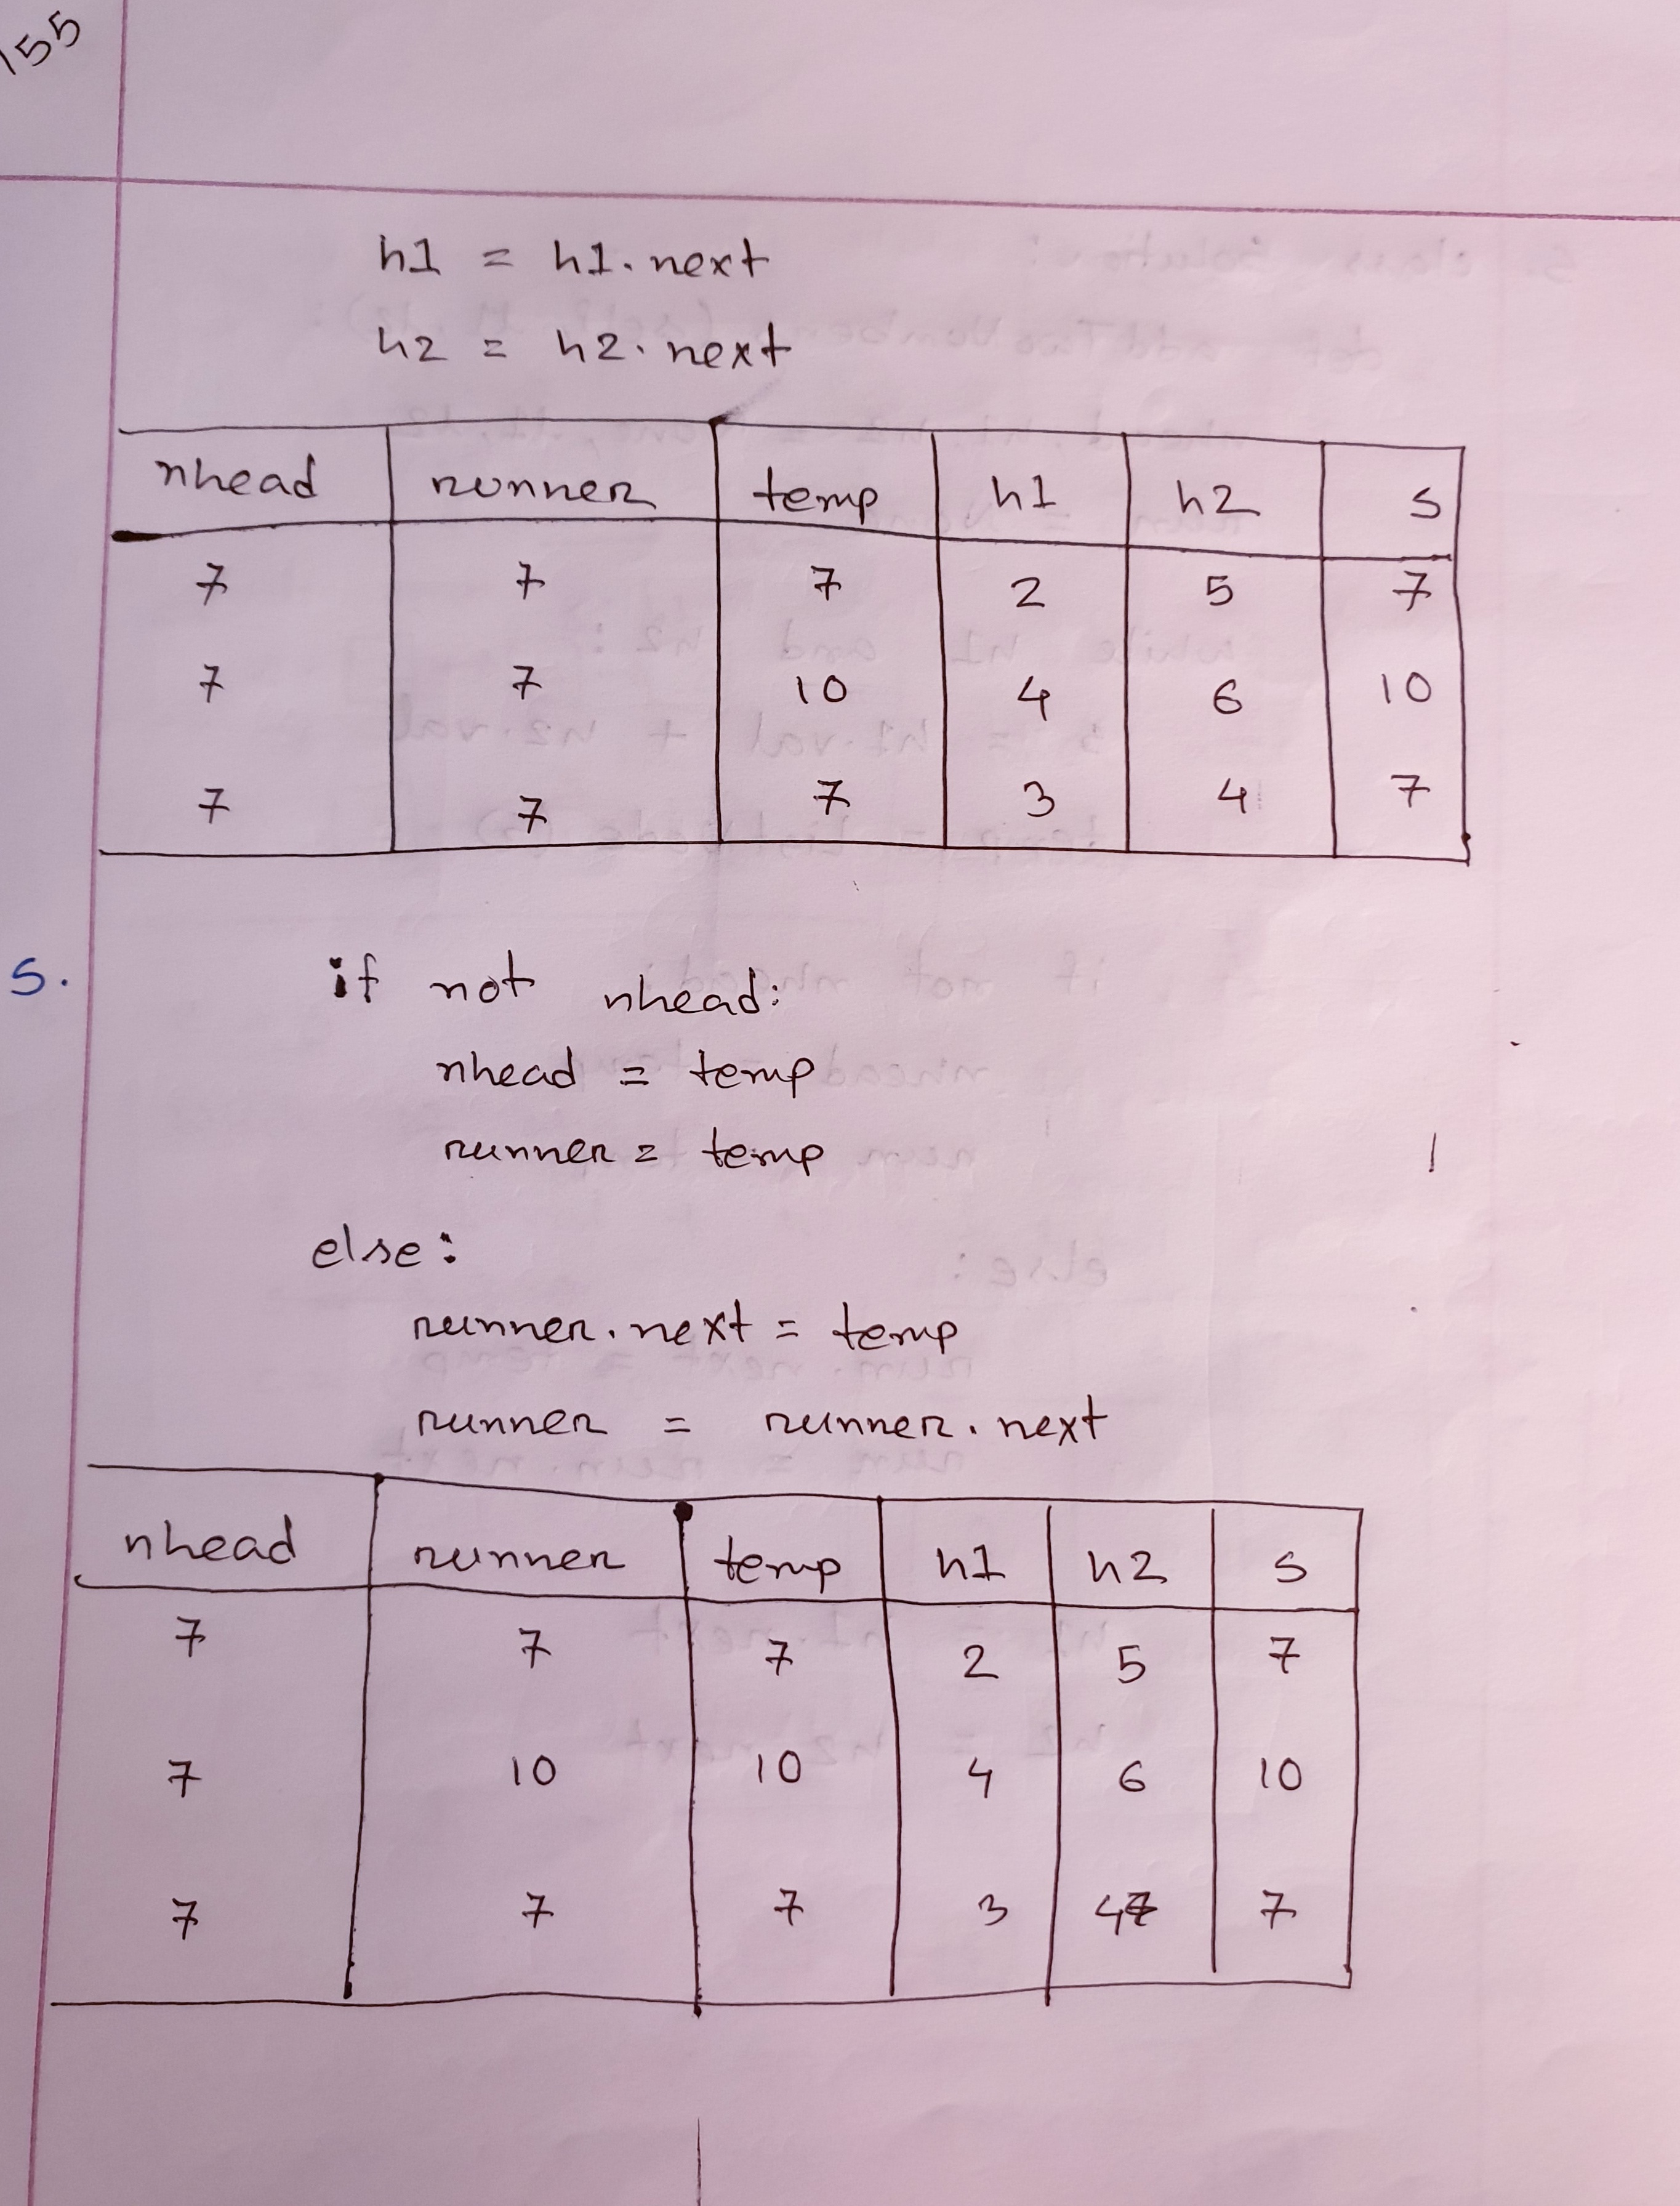 155
h1 = h1.next
h2 = h2.next
nhead runner temp h1 h2 s
7 7 7 2 5 7
7 7 10 4 6 10
7 7 7 3 4 7
5. if not nhead:
nhead = temp
runner = temp
else:
runner.next = temp
runner = runner.next
nhead runner temp h1 h2 s
7 7 7 2 5 7
7 10 10 4 6 10
7 7 7 3 4 7